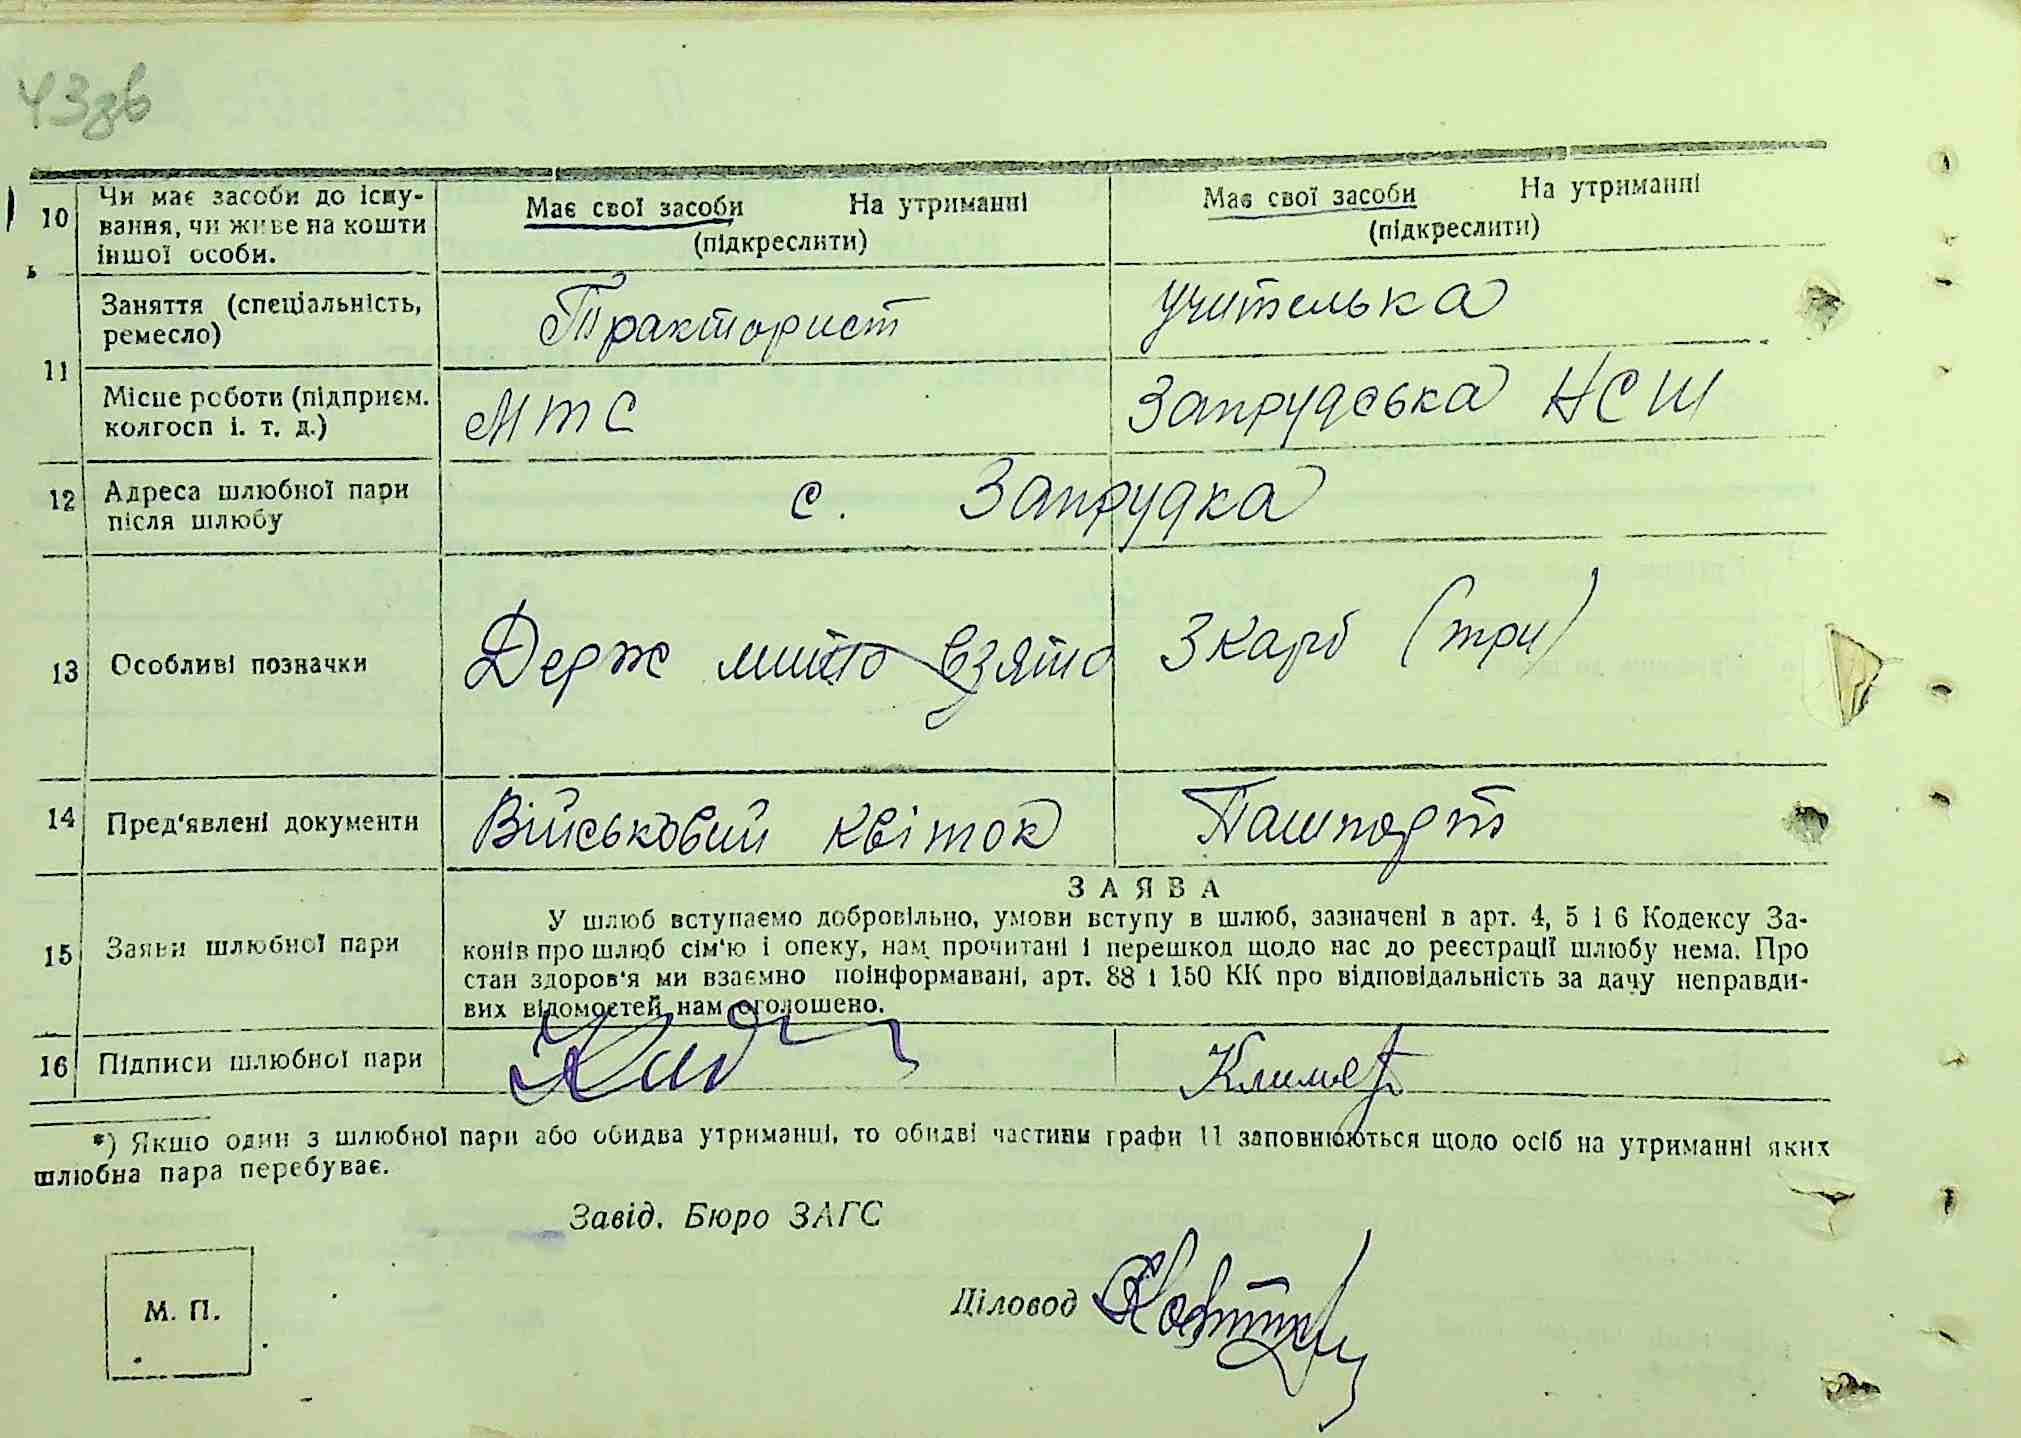 43зв
10 Чи має засоби до існу-
вання, чи живе на кошти
іншої особи.
Має свої засоби На утриманні
(підкреслити)
Має свої засоби На утриманні
(підкреслити)
11
Заняття (спеціальність,
ремесло)
Тракторист
учителька
Місце роботи (підприєм.
колгосп і. т. д.)
МТС
Запрудська НСШ
12 Адреса шлюбної пари
після шлюбу
с. Запрудка
13 Особливі позначки
Держ мито взято
3 карб (три)
14 Пред'явлені документи
Військовий квіток
Пашпорт
15 Заяви шлюбної пари
ЗАЯВА
У шлюб вступаємо добровільно, умови вступу в шлюб, зазначені в арт. 4, 5 і 6 Кодексу За-
конів про шлюб сім'ю і опеку, нам прочитані і перешкод щодо нас до реєстрації шлюбу нема. Про
стан здоров'я ми взаємно поінформавані, арт. 88 і 150 КК про відповідальність за дачу неправди-
вих відомостей нам оголошено.
16 Підписи шлюбної пари
*) Якщо один з шлюбної пари або обидва утриманці, то обидві частини графи 11 заповнюються щодо осіб на утриманні яких
шлюбна пара перебуває.
Завід. Бюро ЗАГС
Діловод
М. П.